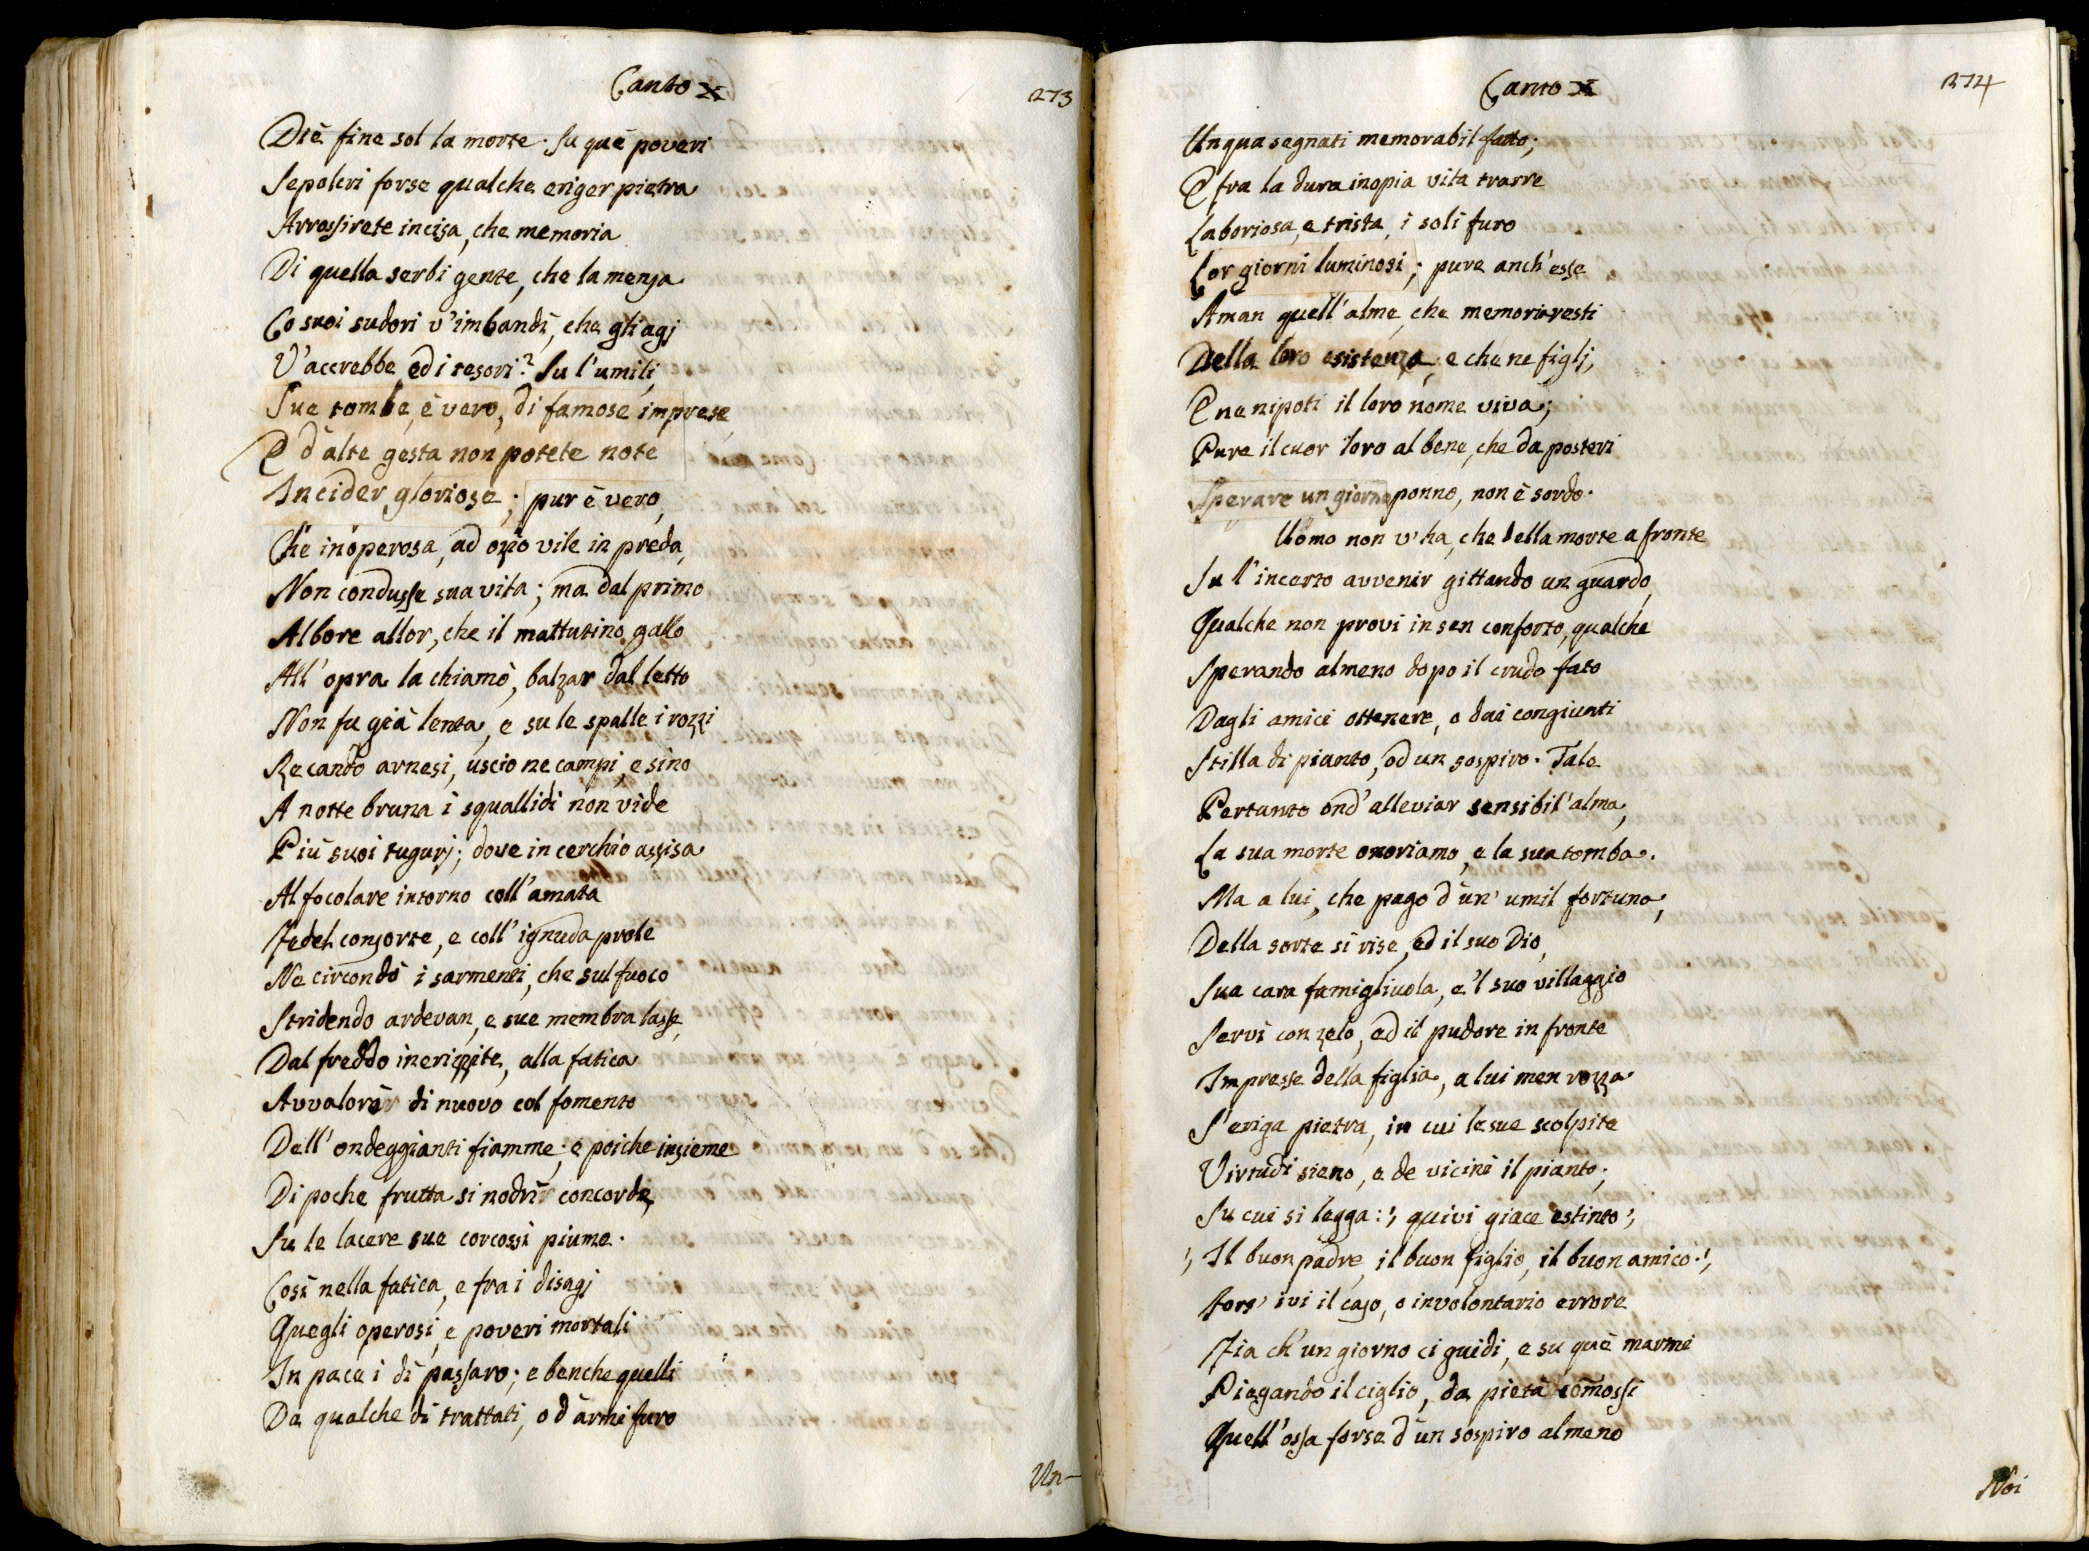 Canto X
273
Diè fine sol la morte. Su què poveri
Sepolcri forse qualche eriger pietra
Arrossirete incisa, che memoria
Di quella serbi gente, che la mensa
Co suoi sudori v'imbandì, che gli agj
V'accrebbe ed i tesori? Su l'umili
Sue tombe, è vero, di famose imprese,
E d'alte gesta non potete note
Incider gloriose; pur è vero,
Chè inoperosa, ad ozio vile in preda,
Non condusse sua vita; ma dal primo
Albore allor, che il mattutino gallo
All'opra la chiamò, balzar dal letto
Non fu già lenta, e su le spalle i rozzi
Recando arnesi, uscio ne campi, e sino
A notte bruna i squallidi non vide
Più suoi tugurj; dove in cerchio assisa
Al focolare intorno coll'amata
Fedel consorte, e coll'ignuda prole
Ne circondò i sarmenti, che sul fuoco
Stridendo ardevan, e sue membra lasse,
Dal freddo inerizzite, alla fatica
Avvalorò di nuovo col fomento
Dell'ondeggianti fiamme; e poiche insieme
Di poche frutta si nodrì concorde,
Su le lacere sue corcossi piume.
Così nella fatica, e fra i disagj
Quegli operosi, e poveri mortali
In pace i dì passaro; e benche quelli
Da qualche dì trattati, o d'armi furo
Un-
Canto X
274
Unqua segnati memorabil fatto;
E fra la dura inopia vita trarre
Laboriosa, e trista, i soli furo
Lor giorni luminosi; pure anch'esse
Aman quell'alme, che memoria resti
Della loro esistenza, e che ne figlj,
E ne nipoti il loro nome viva;
Pure il cuor loro al bene, che da posteri
Sperare un giorno ponno, non è sordo.
Uomo non v'ha, che della morte a fronte
Su l'incerto avvenir gittando un guardo,
Qualche non provi in sen conforto, qualche
Sperando almeno dopo il crudo fato
Dagli amici ottenere, o dai congiunti
Stilla di pianto, od un sospiro. Tale
Pertanto ond'alleviar sensibil'alma,
La sua morte onoriamo, e la sua tomba.
Ma a lui, che pago d'un'umil fortuna,
Della sorte si rise, ed il suo Dio,
Sua cara famigliuola, e'l suo villaggio
Servì con zelo, ed il pudore in fronte
Impresse della figlia, a lui men rozza
S'eriga pietra, in cui le sue scolpite
Virtudi sieno, e de vicini il pianto;
Su cui si legga: " quivi giace estinto "
" Il buon padre, il buon figlio, il buon amico. "
Fors'ivi il caso, o involontario errore
Fia ch'un giorno ci guidi, e su què marmi
Piegando il ciglio, da pietà com̃ossi
Quell'ossa forse d'un sospiro almeno
Noi